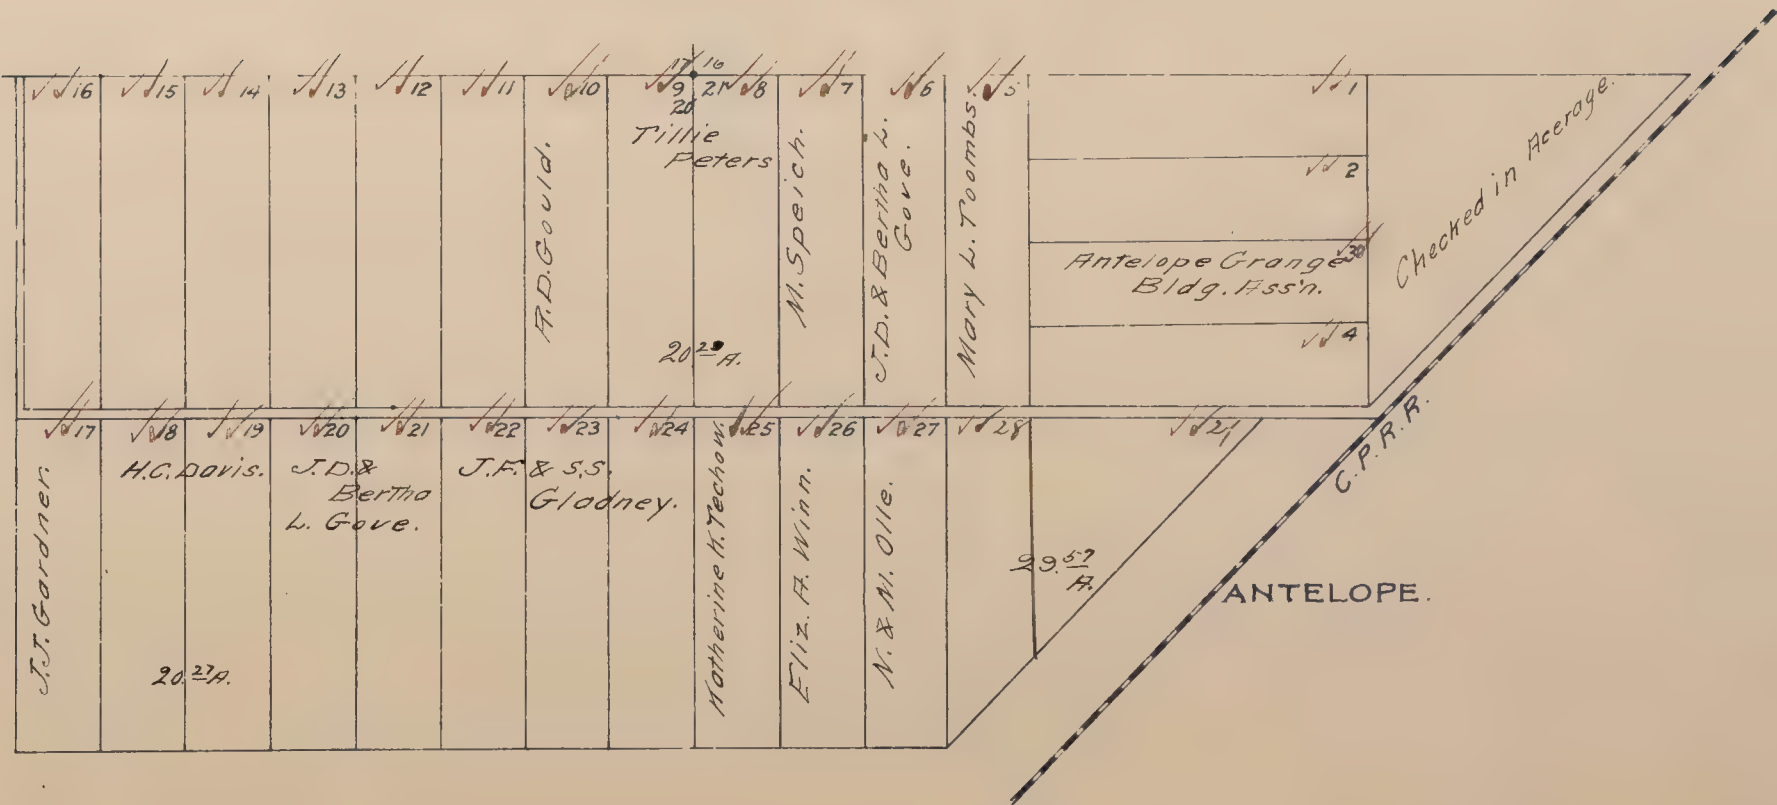 17 16
16 15 14 13 12 11 10 9 21 8 7 6 5 1
20
Tillie
Peters
R.D. Gould.
M. Speich.
J.D. & Bertha L.
Gove.
Mary L. Toombs.
2
30
Antelope Grange
Bldg. Ass'n.
4
Checked in Acerage.
20 29 A.
17 18 19 20 21 22 23 24 25 26 27 28
J.J. Gardner.
H.C. Davis.
J.D. &
Bertha
L. Gove.
J.F. & S.S.
Gladney.
Katherine K. Techow.
Eliz. A. Winn.
N. & M. Olle.
C.P.R.R.
20.27 A.
29.57
A.
ANTELOPE.